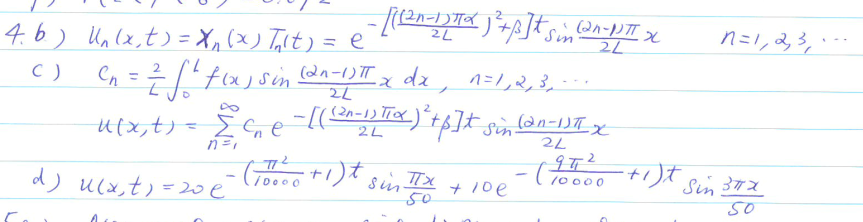 4. b) Uₙ(x,t) = Xₙ(x) Tₙ(t) = e^{-[((2n-1)πα / 2L)² + β]t} sin ((2n-1)π / 2L) x    n=1,2,3,...
c) Cₙ = 2/L ∫₀ᴸ f(x) sin ((2n-1)π / 2L) x dx, n=1,2,3,...
u(x,t) = Σ_{n=1}^{∞} Cₙ e^{-[((2n-1)πα / 2L)² + β]t} sin ((2n-1)π / 2L) x
d) u(x,t) = 20 e^{-(π²/10000 + 1)t} sin πx/50 + 10 e^{-(9π²/10000 + 1)t} sin 3πx/50